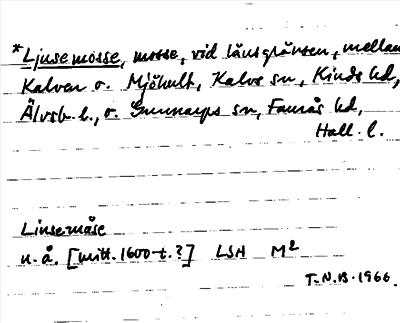 *Ljusemosse, mosse, vid länsgränsen, mellan
Kalven o. Mjöhult, Kalvs sn, Kinds hd,
Älvsb. l., o. Gunnarps sn, Faurås hd,
Hall. l.
Liusemåse
u. å. [mitt. 1600-t.?] LSA M²
T.N.B. 1966.